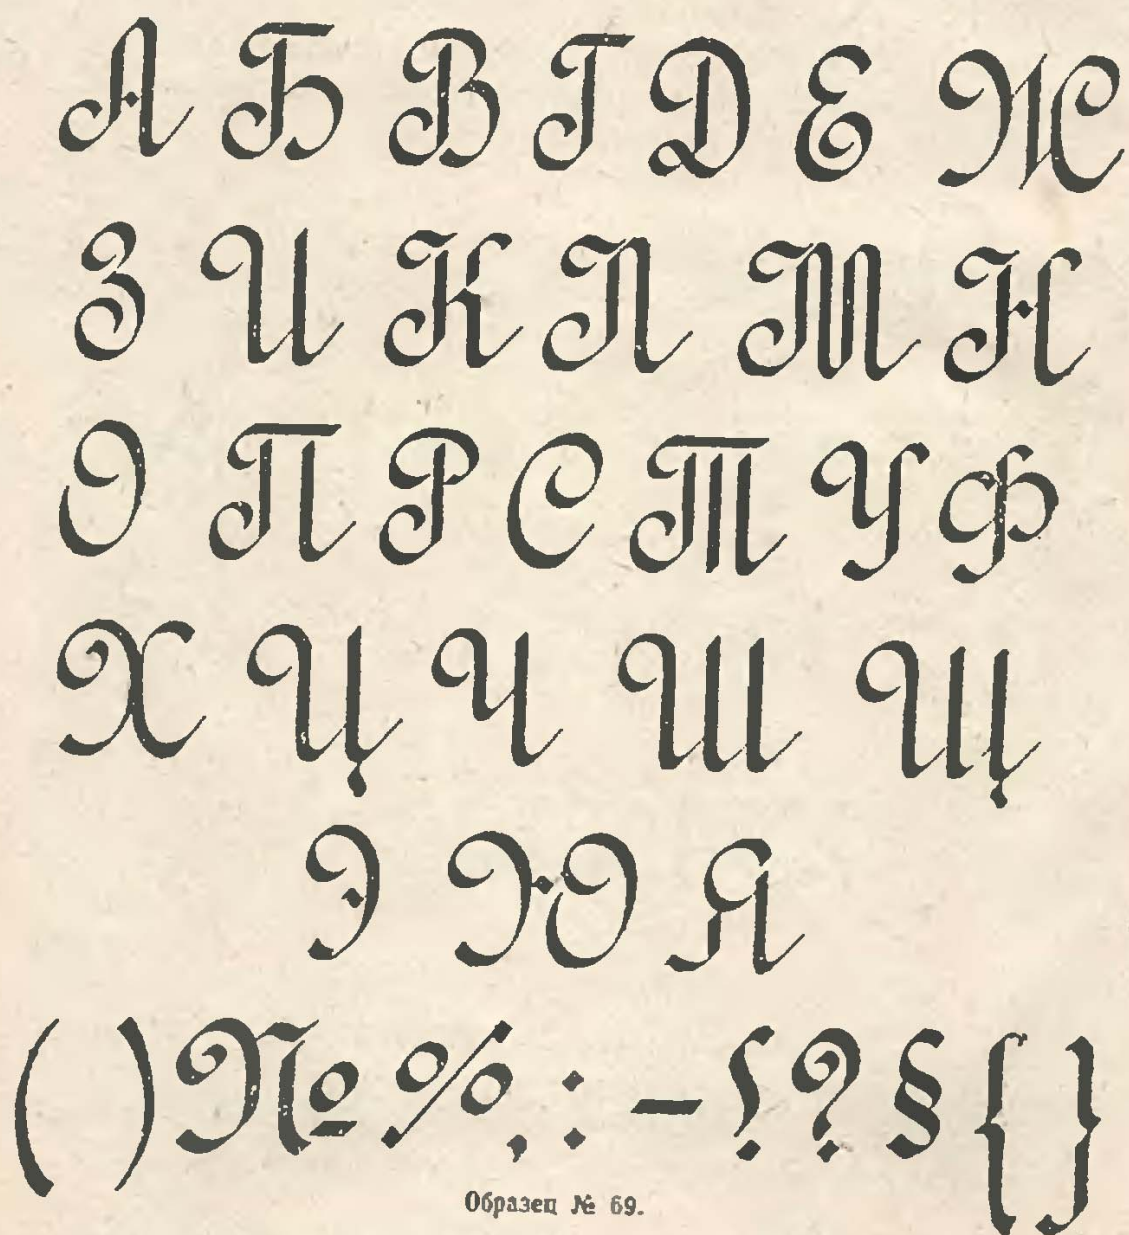 А Б В Г Д Е Ж
З И К Л М Н
О П Р С Т У Ф
Х Ц Ч Ш Щ
Э Ю Я
( ) № % , : – ! ? § { }
Образец № 69.